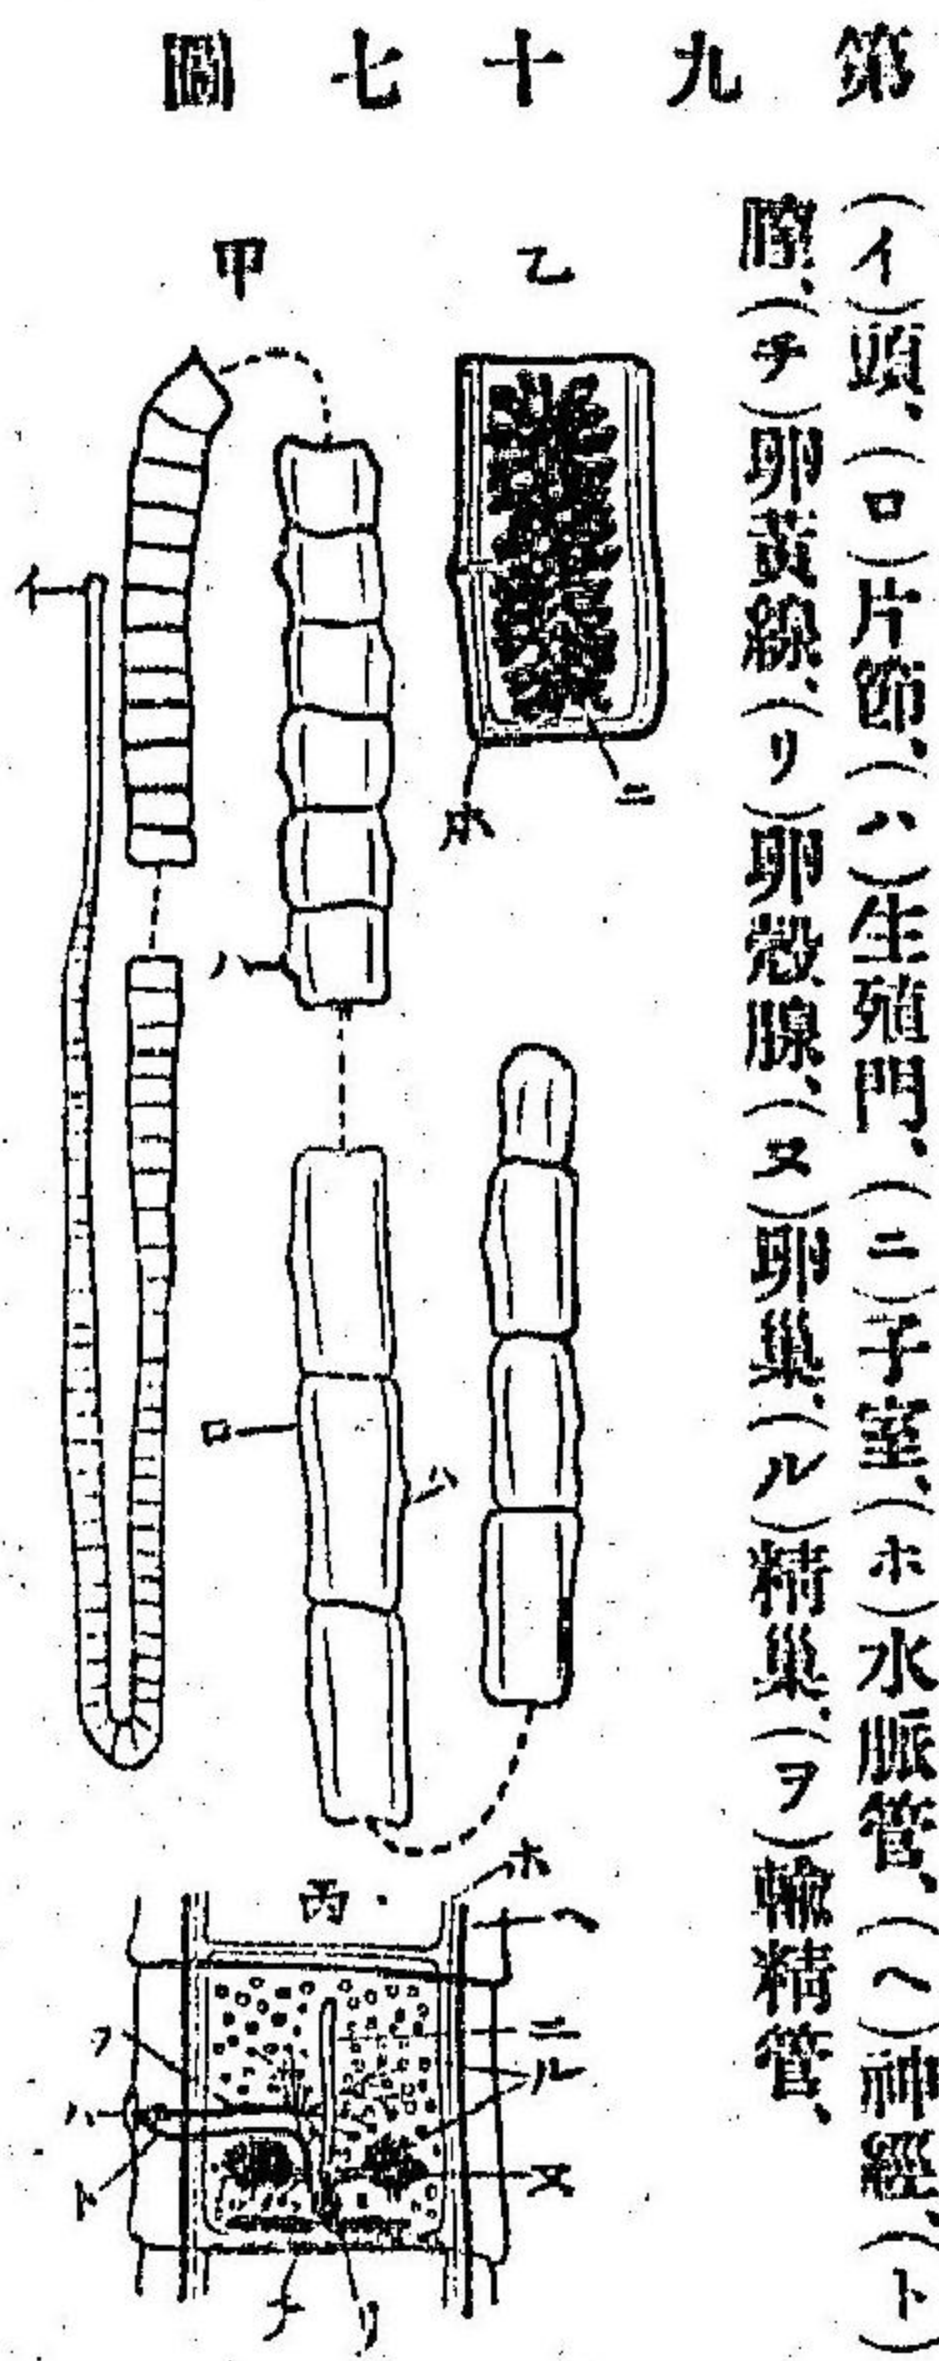 第九十七圖
(イ)頭、(ロ)片節、(ハ)生殖門、(ニ)子室、(ホ)水脈管、(ヘ)神經、(ト)
膣、(チ)卵黃線、(リ)卵殼腺、(ヌ)卵巢、(ル)精巢、(ヲ)輸精管、
甲
乙
イ
ハ
ロ
ハ
ホ
ニ
丙
ホ
ヘ
ニ
ル
ヌ
ヲ
ハ
ト
チ
リ